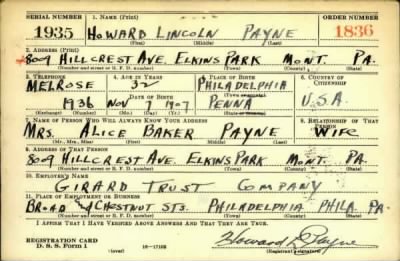 SERIAL NUMBER 1. NAME (Print) ORDER NUMBER
1935 HOWARD LINCOLN PAYNE 1836
(First) (Middle) (Last)
2. ADDRESS (Print)
8009 HILLCREST AVE. ELKINS PARK MONT. PA.
(Number and street or R. F. D. number) (Town) (County) (State)
3. TELEPHONE 4. AGE IN YEARS 5. PLACE OF BIRTH 6. COUNTRY OF CITIZENSHIP
MELROSE 32 PHILADELPHIA
DATE OF BIRTH (Town or county)
1936 NOV 7 1907 PENNA U.S.A.
(Exchange) (Number) (Mo.) (Day) (Yr.) (State or country)
7. NAME OF PERSON WHO WILL ALWAYS KNOW YOUR ADDRESS 8. RELATIONSHIP OF THAT PERSON
MRS. ALICE BAKER PAYNE WIFE
(Mr., Mrs., Miss) (First) (Middle) (Last)
9. ADDRESS OF THAT PERSON
8009 HILLCREST AVE. ELKINS PARK MONT. PA.
(Number and street or R. F. D. number) (Town) (County) (State)
10. EMPLOYER'S NAME
GIRARD TRUST COMPANY
11. PLACE OF EMPLOYMENT OR BUSINESS
BROAD & CHESTNUT STS. PHILADELPHIA PHILA. PA.
(Number and street or R. F. D. number) (Town) (County) (State)
I AFFIRM THAT I HAVE VERIFIED ABOVE ANSWERS AND THAT THEY ARE TRUE.
REGISTRATION CARD
D. S. S. Form 1 (over) 16-17105 Howard L. Payne
(Registrant's signature)